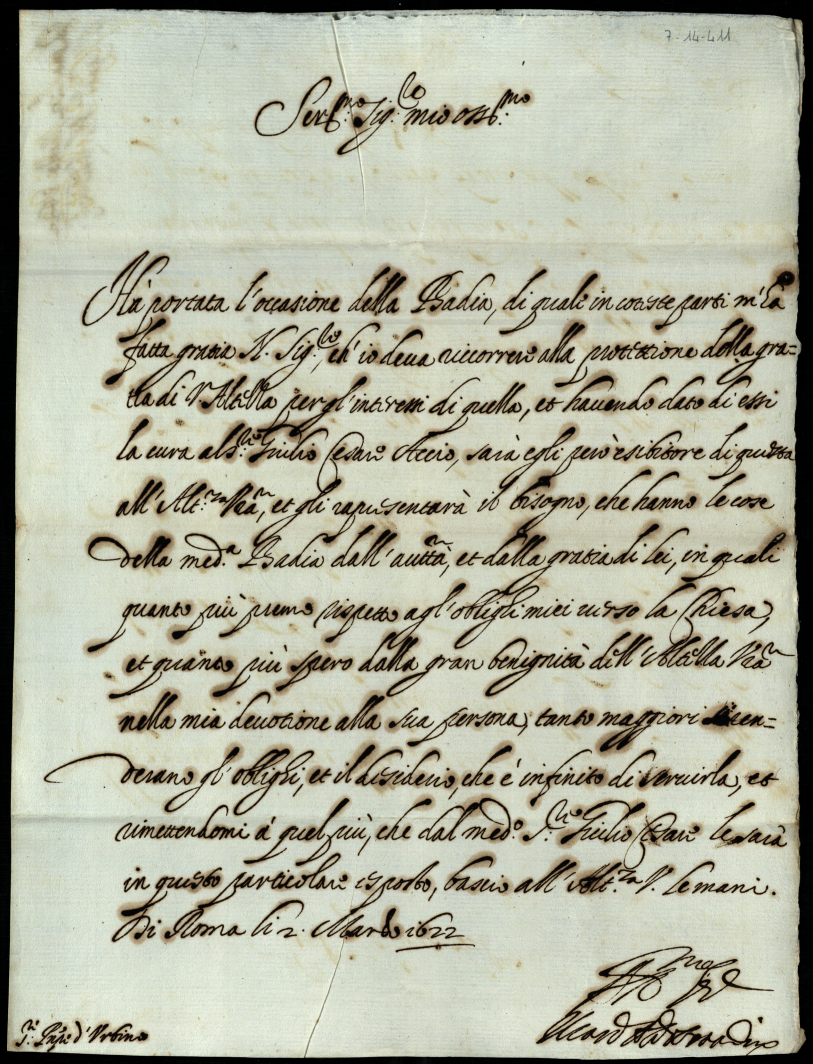 7-14-411
Ser.mo Sig.re mio oss.mo
Hà portata l'occasione della Badia, di quale in coteste parti m'ha
fatta gratia N. Sig.re, ch'io deva riccorrere alla protettione della gra=
tia di V. Altezza per gl'interessi di quella, et havendo dato di essi
la cura al S.re Giulio Cesare Accio, sarà egli però esibitore di questa
all'Alt.za Vra, et gli rapresentarà il bisogno, che hanno le cose
della med.a Badia dall'auttà, et dalla gratia di lei, in quali
quanto più premo rispetto agl'oblighi miei verso la Chiesa,
et quanto più spero dalla gran benignità dell'Altezza Vra
nella mia devotione alla sua persona, tanto maggiori si ren=
derano gl'oblighi, et il desiderio, che è infinito di servirla, et
rimettendomi à quel più, che dal med.o S.re Giulio Cesare le sarà
in questo particolare esposto, bascio all'Alt.za V. le mani.
Di Roma li 2. Marzo 1622
Il Card Aldobrandino
S.re Pnpe d'Urbino